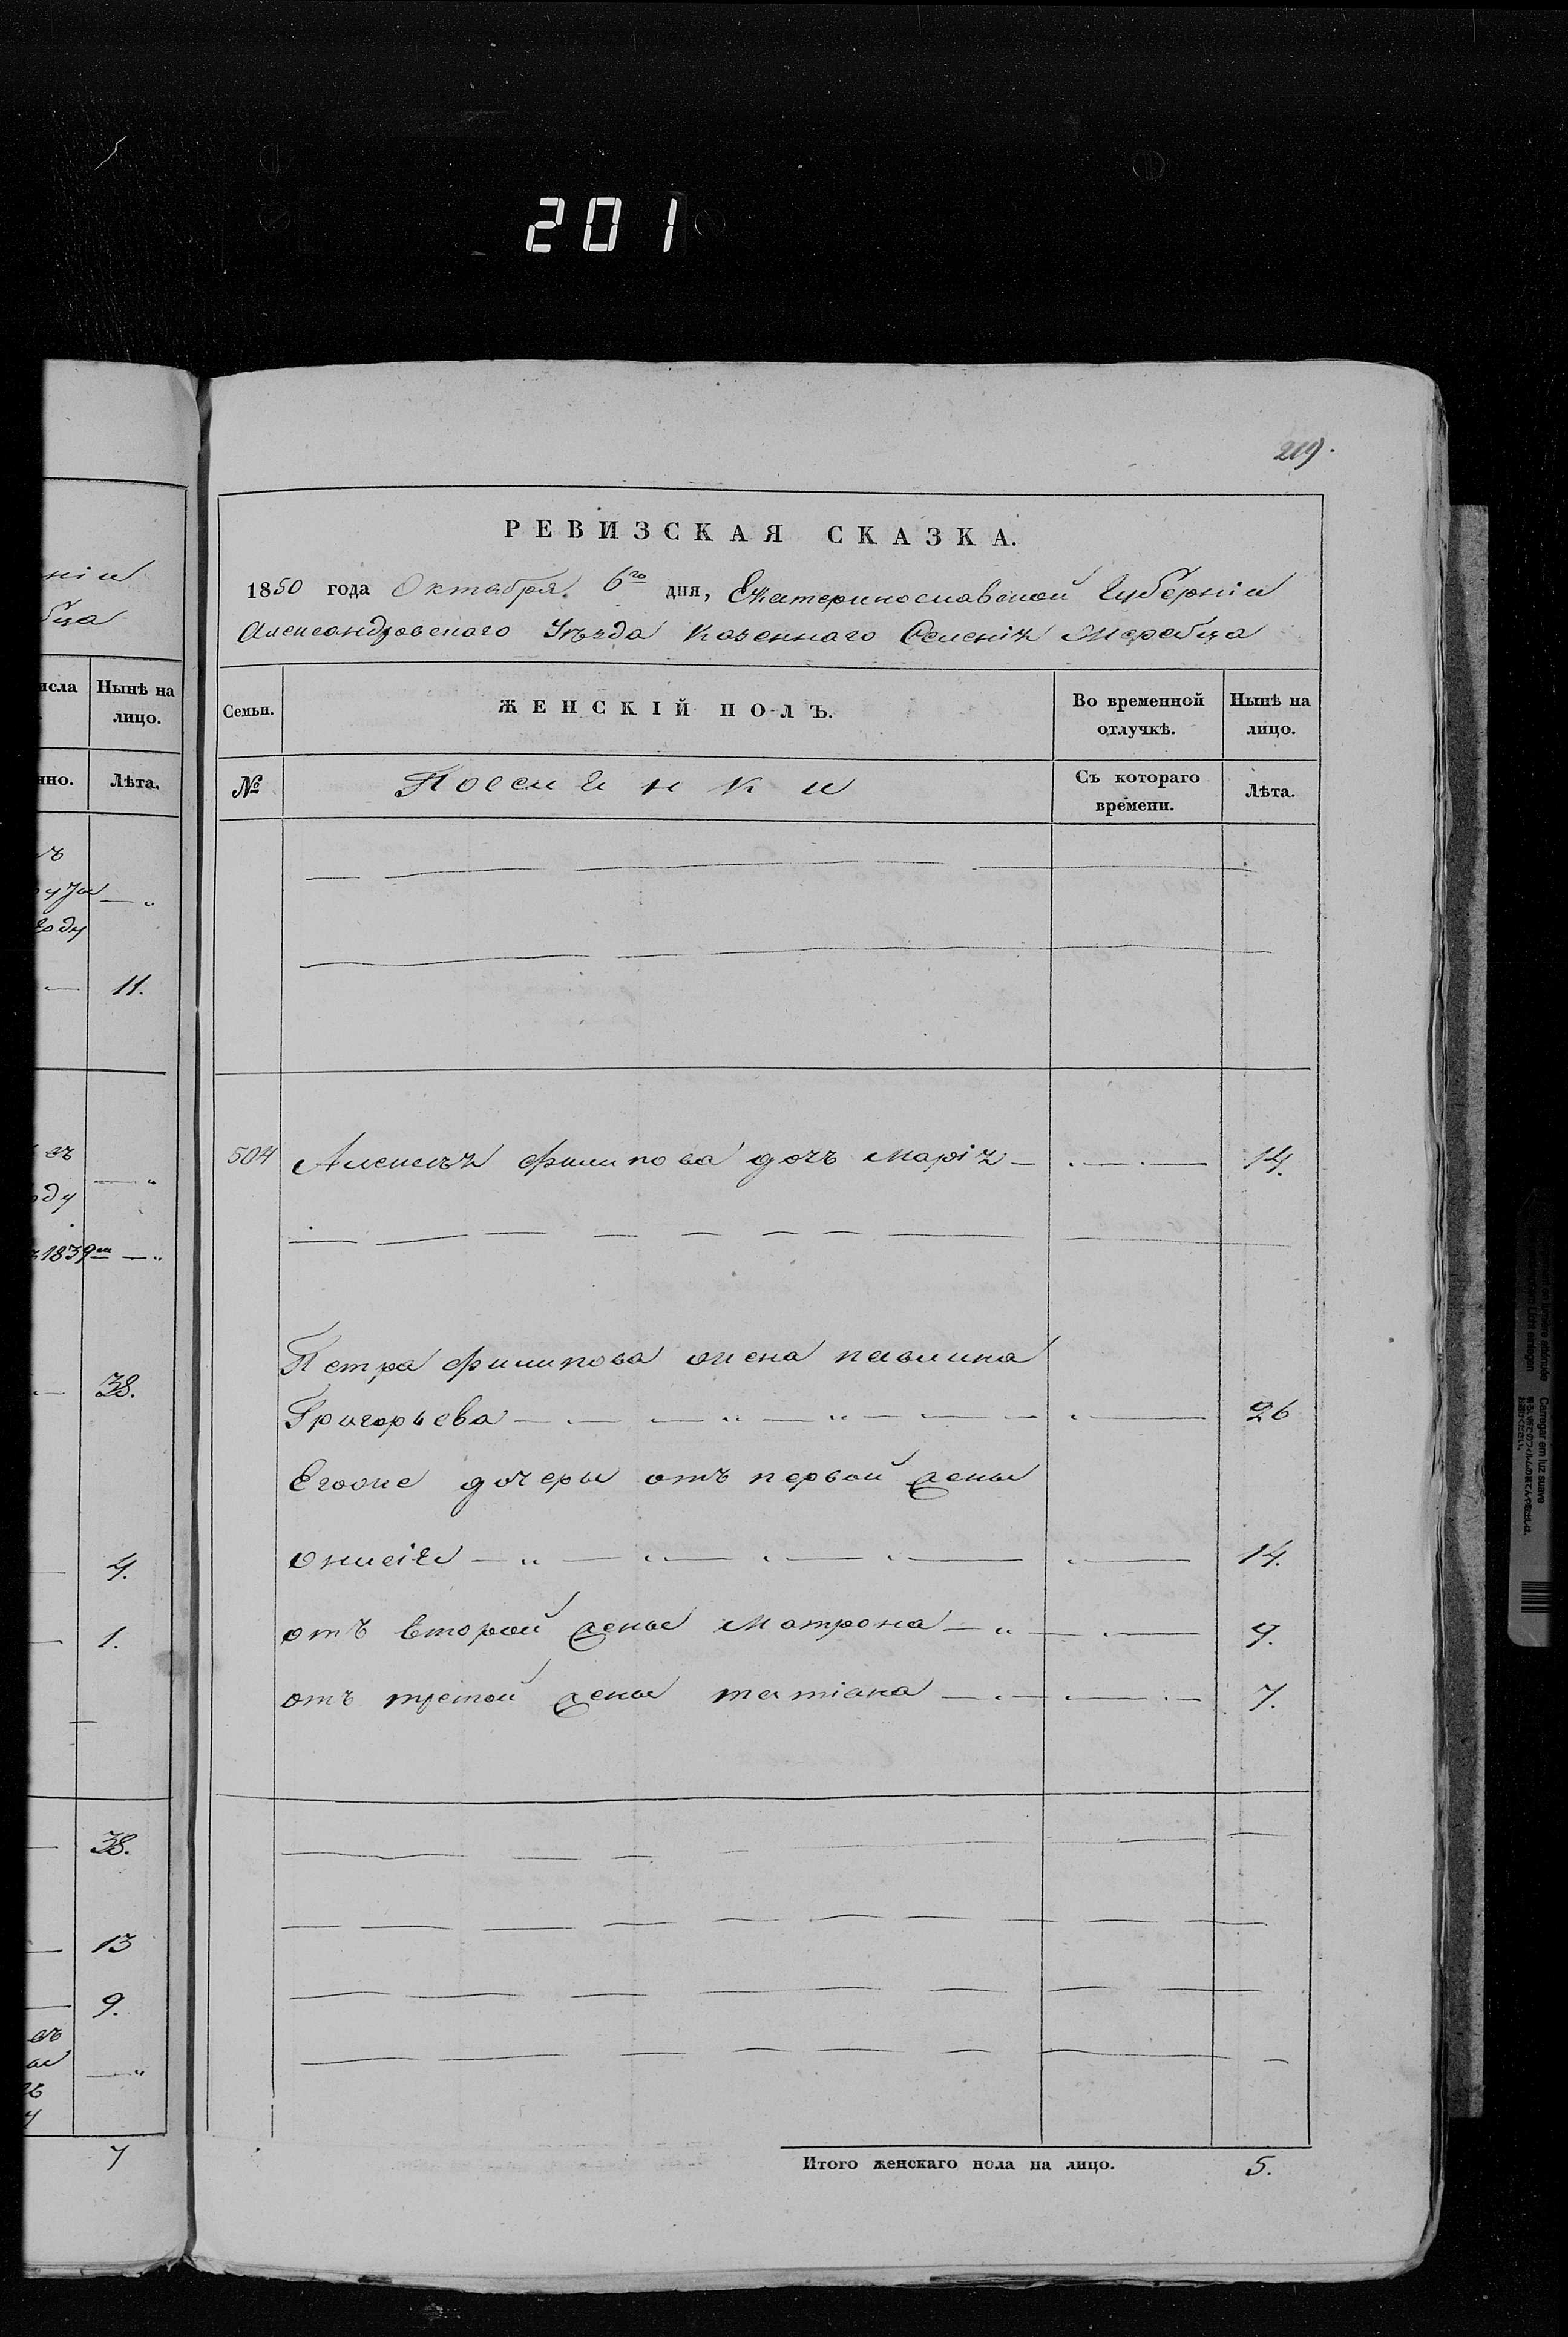 201
219.
РЕВИЗСКАЯ СКАЗКА.
1850 года Октября 6го дня, Екатеринославской Губерніи
Александровскаго Уѣзда казеннаго Селенія Жеребца
Семьи. ЖЕНСКІЙ ПОЛЪ. Во временной отлучкѣ. Ныне на лицо.
№ Съ котораго времени. Лѣта.
504 Алексѣя Филипова дочь Марія 14.
Петра Филипова жена павлина
Григорьева 26
Егоже дочеры отъ первой жены
14.
отъ второй жены Матрона 9.
отъ третой жены татіана 7.
Итого женскаго пола на лицо. 5.
ніи
бца
исла Нынѣ на лицо.
нно. Лѣта.
оду
году
11.
въ
оду
1839
38.
4.
1.
38.
13
9.
въ
7